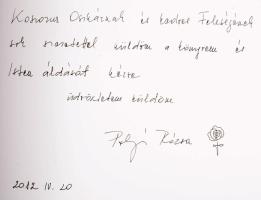 Koszorus Oszkárnak és kedves Feleségének
sok szeretettel küldöm a könyvem és
Isten áldását kérve
üdvözletem küldöm
Pályi Rózsa
2012 IV. 20